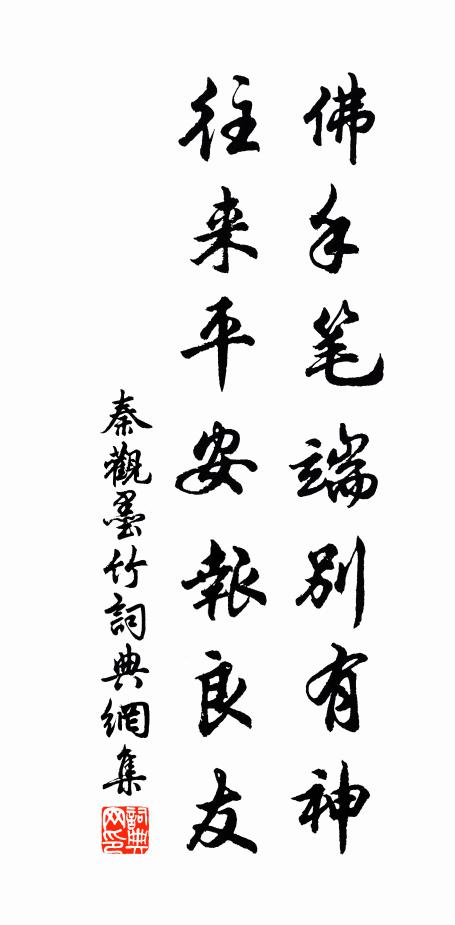 佛手笔端別有神
往来平安報良友
秦觀墨竹詞典網集
詞典网印